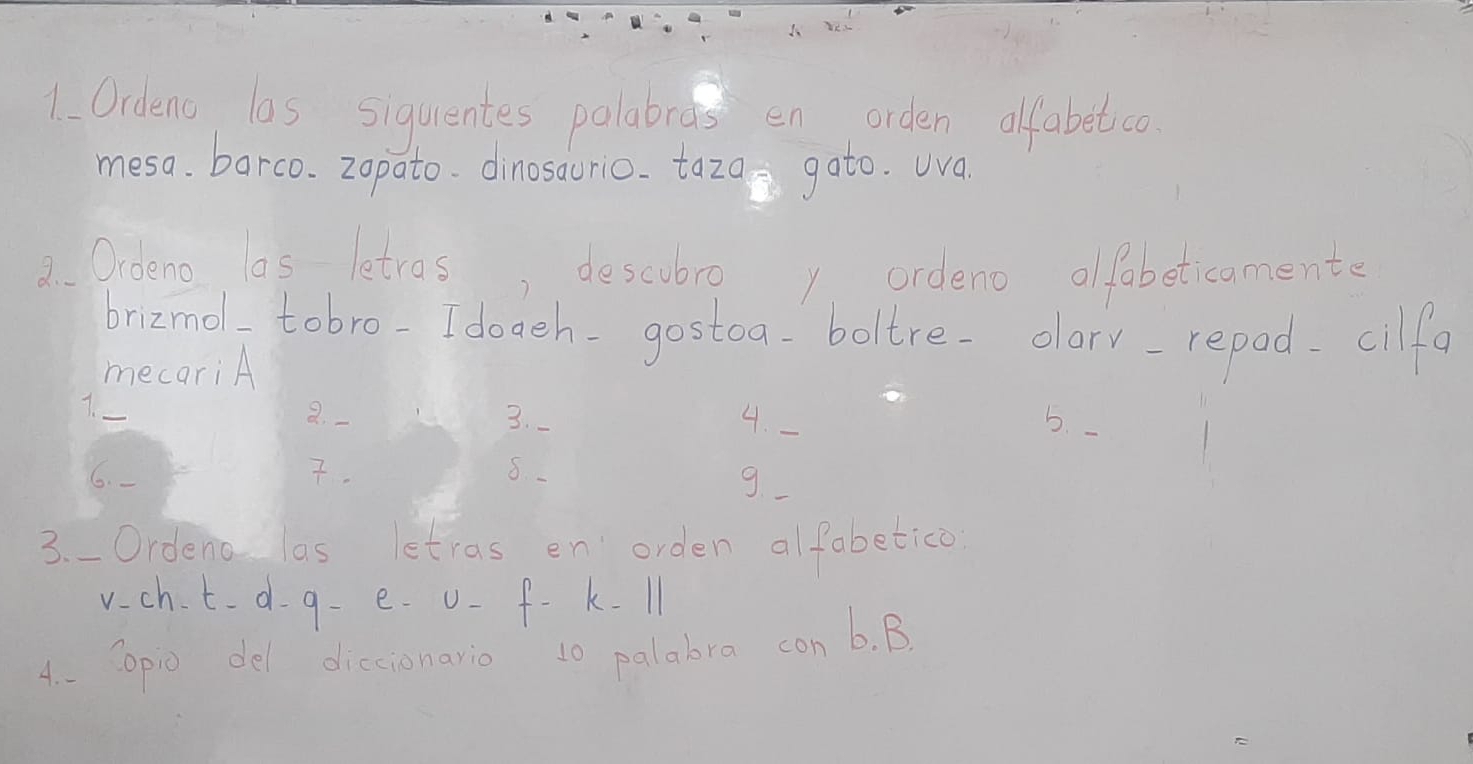 1.- Ordeno las siguientes palabras en orden alfabético.
mesa. barco. zapato. dinosaurio- taza- gato. uva.
2.- Ordeno las letras, descubro y ordeno alfabeticamente
brizmol- tobro- Idoaeh- gostoa- boltre- olarv- repad- cilfa
mecariA
1.- 2.- 3.- 4.- 5.-
6.- 7- 8- 9.-
3.- Ordeno las letras en orden alfabetico:
v-ch-t-d-q-e-u-f-k-ll
4.- Copio del diccionario 10 palabra con b.B.